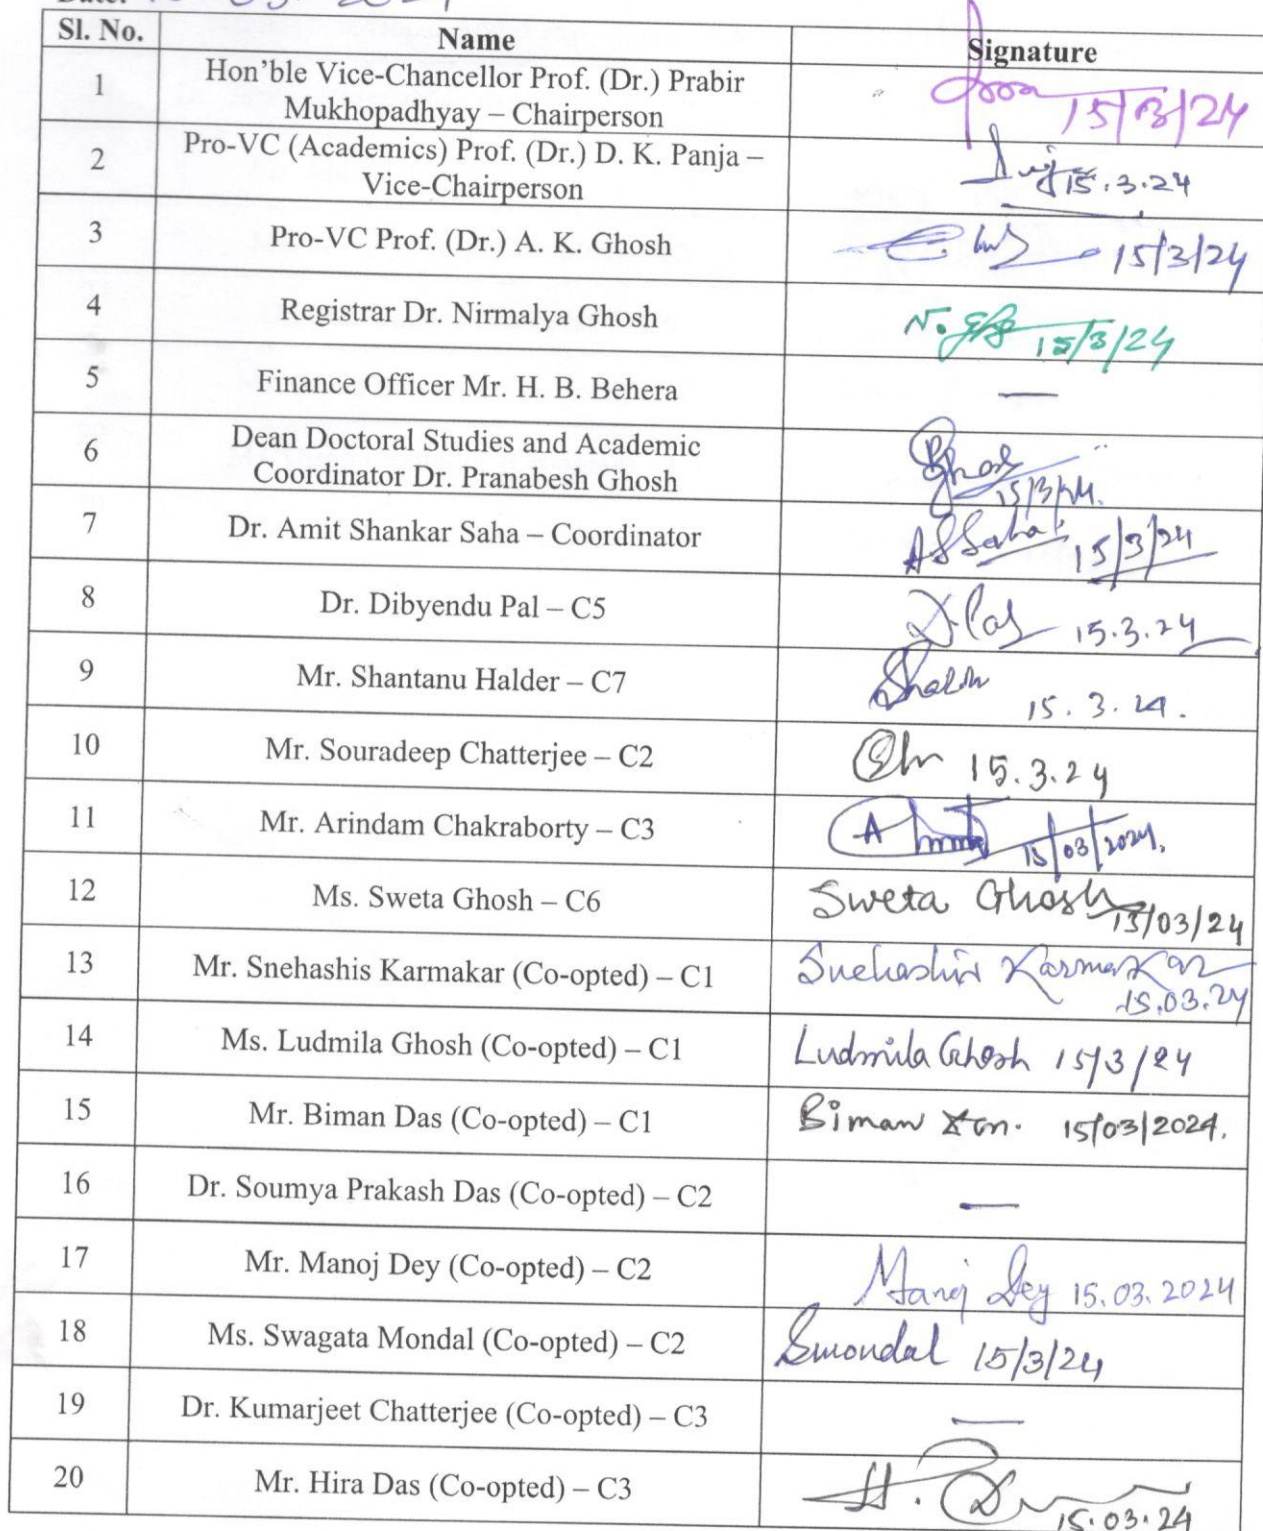 Sl. No. Name Signature
1 Hon’ble Vice-Chancellor Prof. (Dr.) Prabir
Mukhopadhyay – Chairperson 15/3/24
2 Pro-VC (Academics) Prof. (Dr.) D. K. Panja –
Vice-Chairperson 15.3.24
3 Pro-VC Prof. (Dr.) A. K. Ghosh 15/3/24
4 Registrar Dr. Nirmalya Ghosh N. 15/3/24
5 Finance Officer Mr. H. B. Behera —
6 Dean Doctoral Studies and Academic
Coordinator Dr. Pranabesh Ghosh 15/3/24.
7 Dr. Amit Shankar Saha – Coordinator ASSaha 15/3/24
8 Dr. Dibyendu Pal – C5 D.Pal 15.3.24
9 Mr. Shantanu Halder – C7 15.3.24.
10 Mr. Souradeep Chatterjee – C2 15.3.24
11 Mr. Arindam Chakraborty – C3 A 15/03/2024.
12 Ms. Sweta Ghosh – C6 Sweta Ghosh 15/03/24
13 Mr. Snehashis Karmakar (Co-opted) – C1 Snehashis Karmakar
15.03.24
14 Ms. Ludmila Ghosh (Co-opted) – C1 Ludmila Ghosh 15/3/24
15 Mr. Biman Das (Co-opted) – C1 Biman Das. 15/03/2024.
16 Dr. Soumya Prakash Das (Co-opted) – C2 —
17 Mr. Manoj Dey (Co-opted) – C2 Manoj Dey 15.03.2024
18 Ms. Swagata Mondal (Co-opted) – C2 Smondal 15/3/24
19 Dr. Kumarjeet Chatterjee (Co-opted) – C3 —
20 Mr. Hira Das (Co-opted) – C3 H. 15.03.24